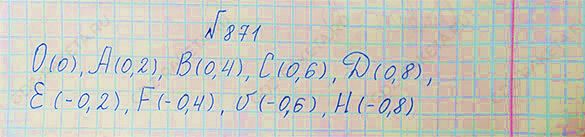 №871
O(0), A(0,2), B(0,4), C(0,6), D(0,8),
E(-0,2), F(-0,4), G(-0,6), H(-0,8)